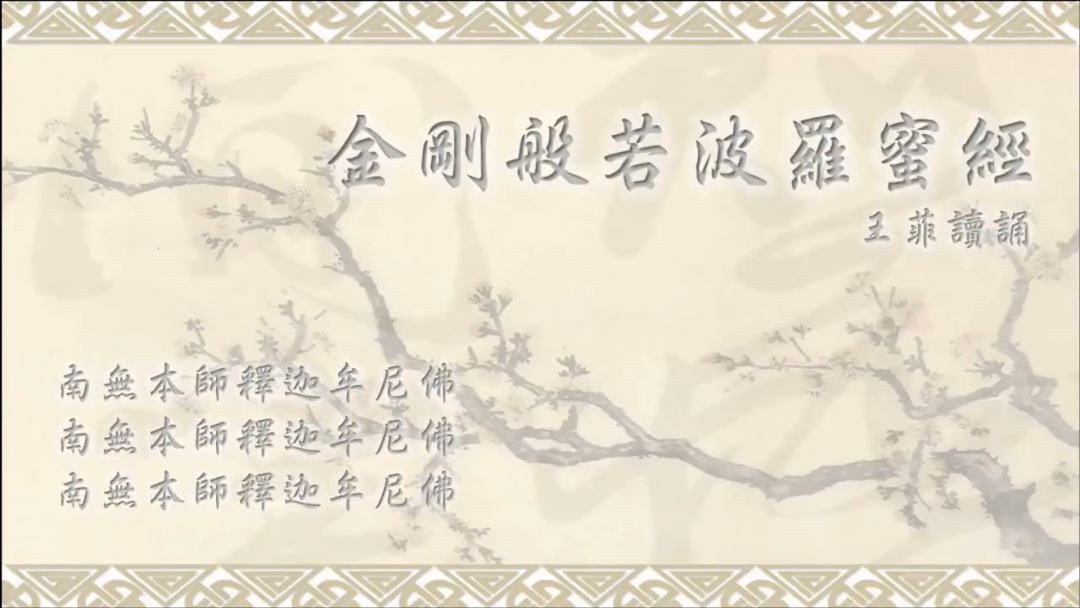 金剛般若波羅蜜經
王菲讀誦
南無本師釋迦牟尼佛
南無本師釋迦牟尼佛
南無本師釋迦牟尼佛